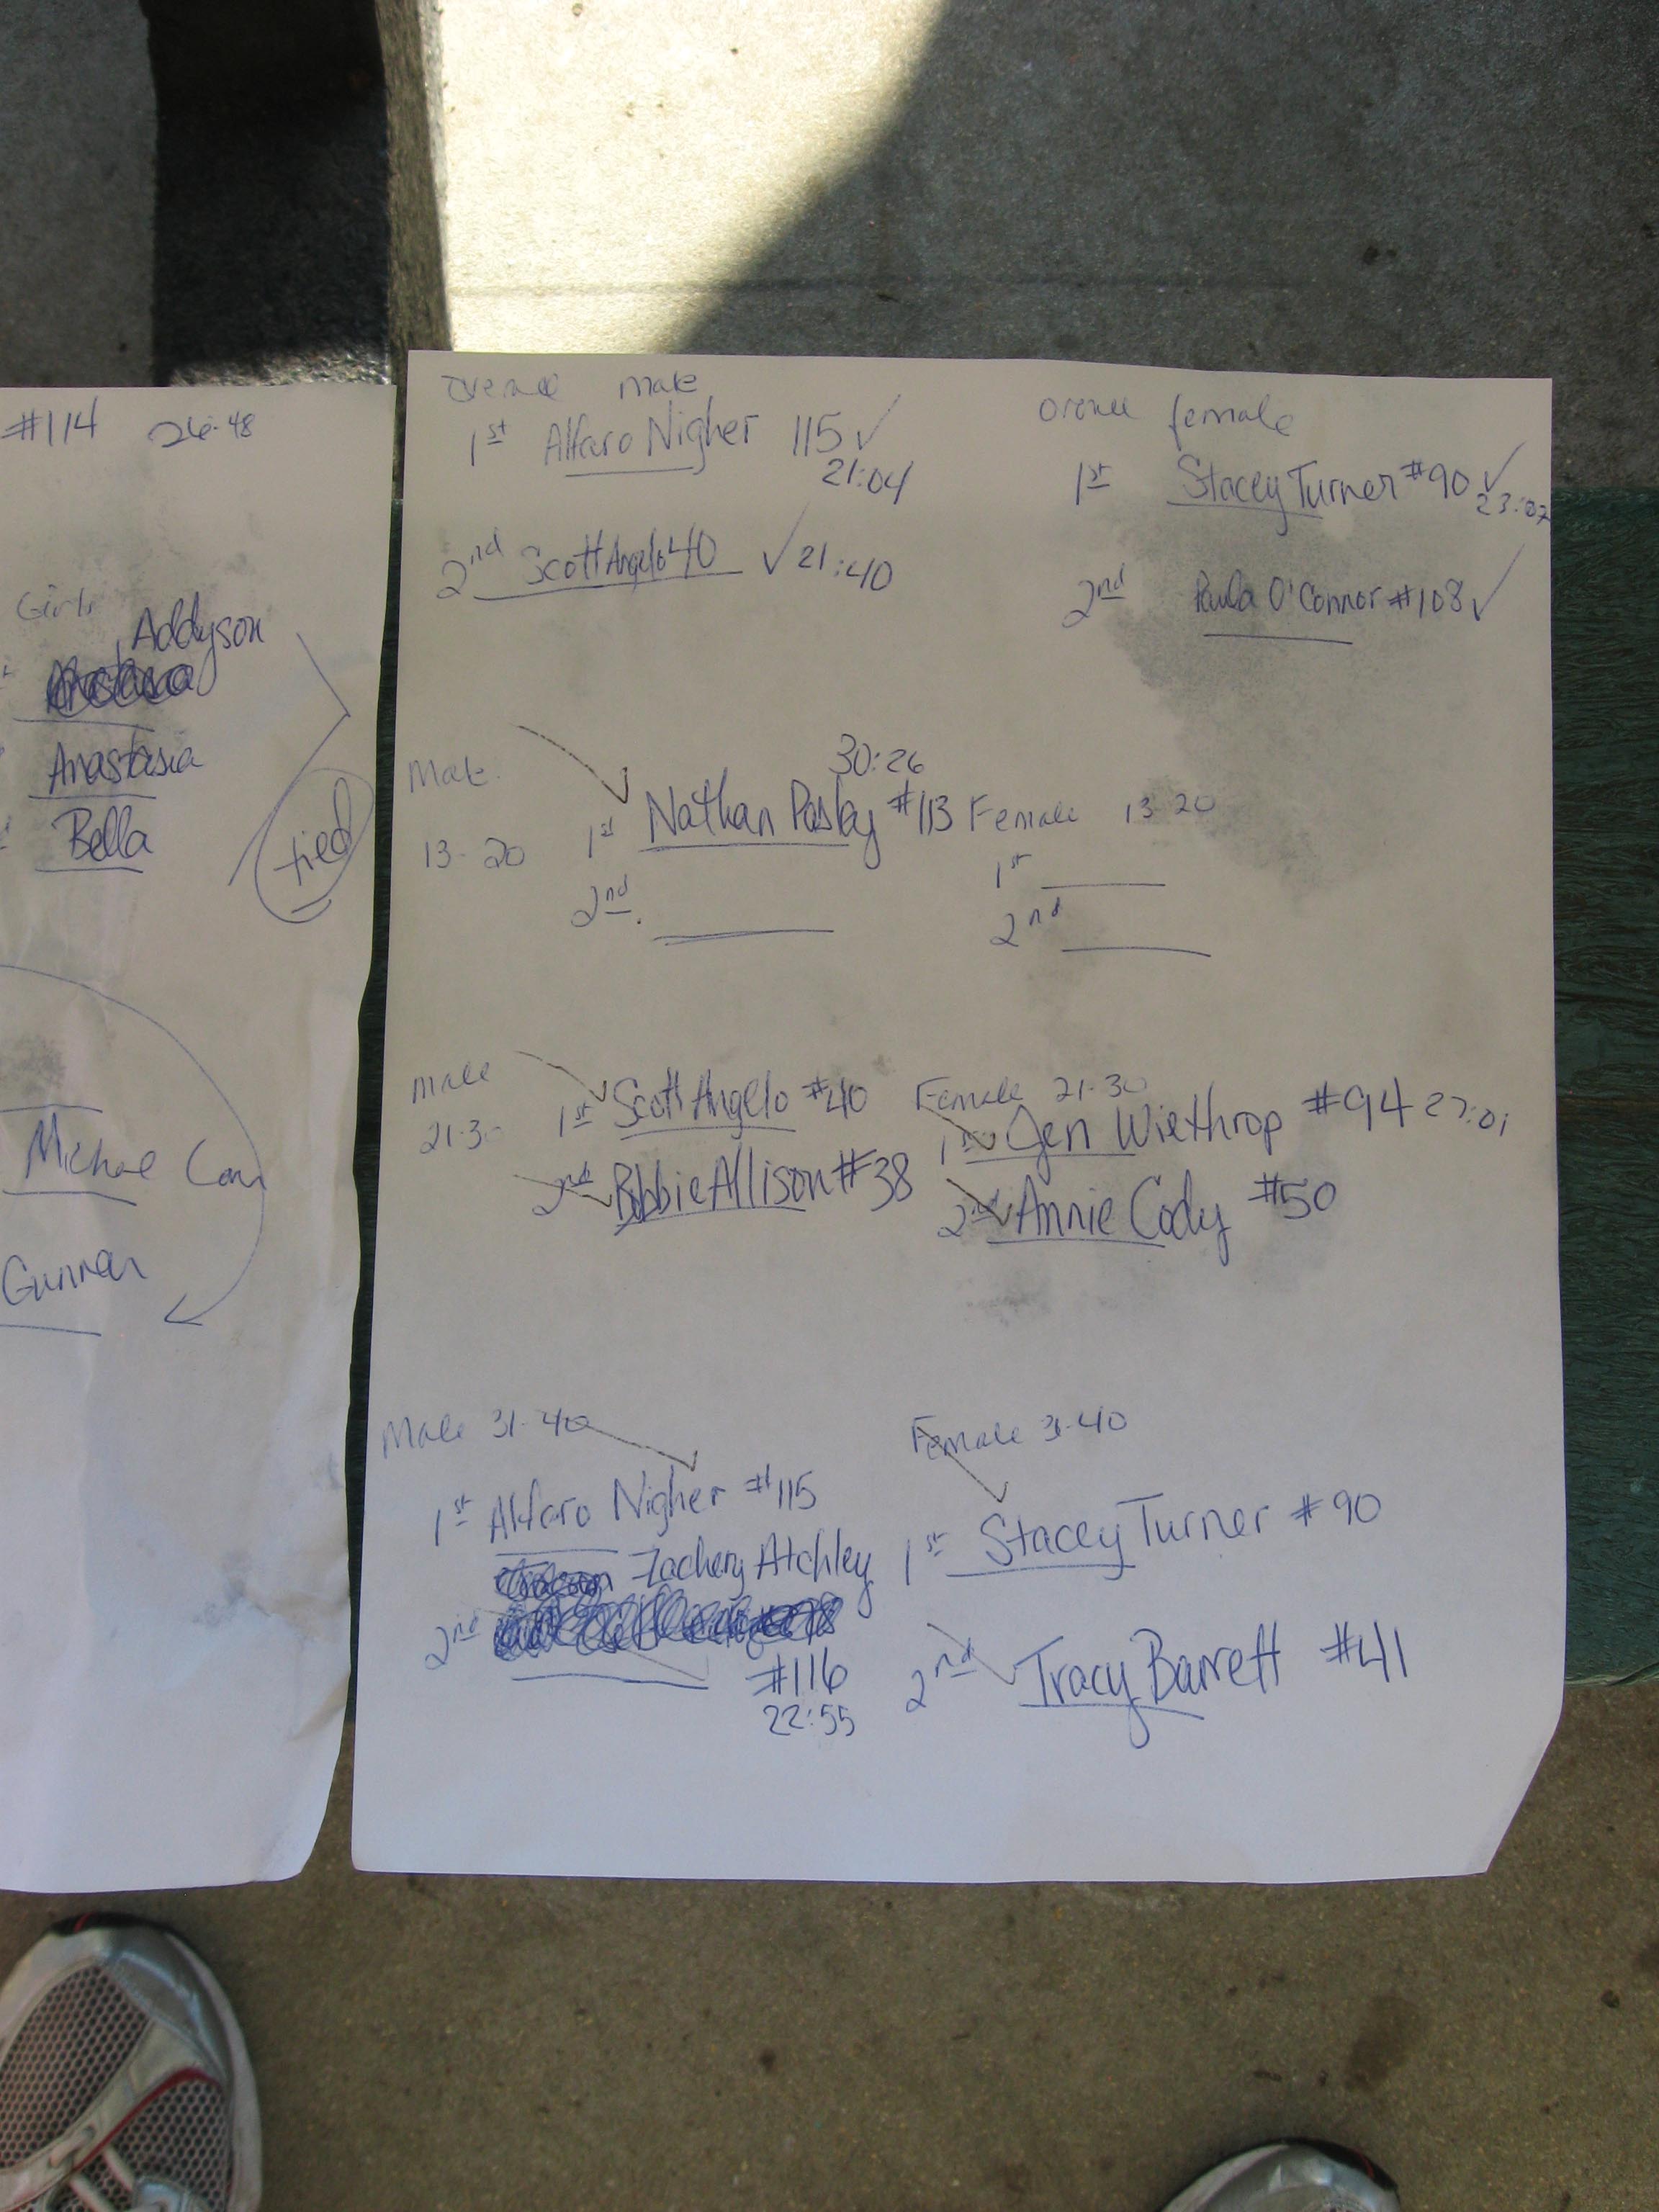 #114 26:48
Girls
Addyson
Anastasia
Bella
tied
Michael
Gunnar
Overall male
1st Alfaro Nigher 115 ✓
21:04
2nd Scott Angelo 40 ✓ 21:40
female
1st Stacey Turner #90 ✓
23:07
2nd Paula O'Connor #108 ✓
Male
13-20
30:26
1st Nathan Pasley #113
2nd
Female 13-20
1st
2nd
male
21-30
1st Scott Angelo #40
2nd Bobbie Allison #38
Female 21-30
1st Jen Wiethrop #94 27:01
2nd Annie Cody #50
Male 31-40
1st Alfaro Nigher #115
Zachery Atchley
2nd
#116
22:55
Female 31-40
1st Stacey Turner #90
2nd Tracy Barrett #41